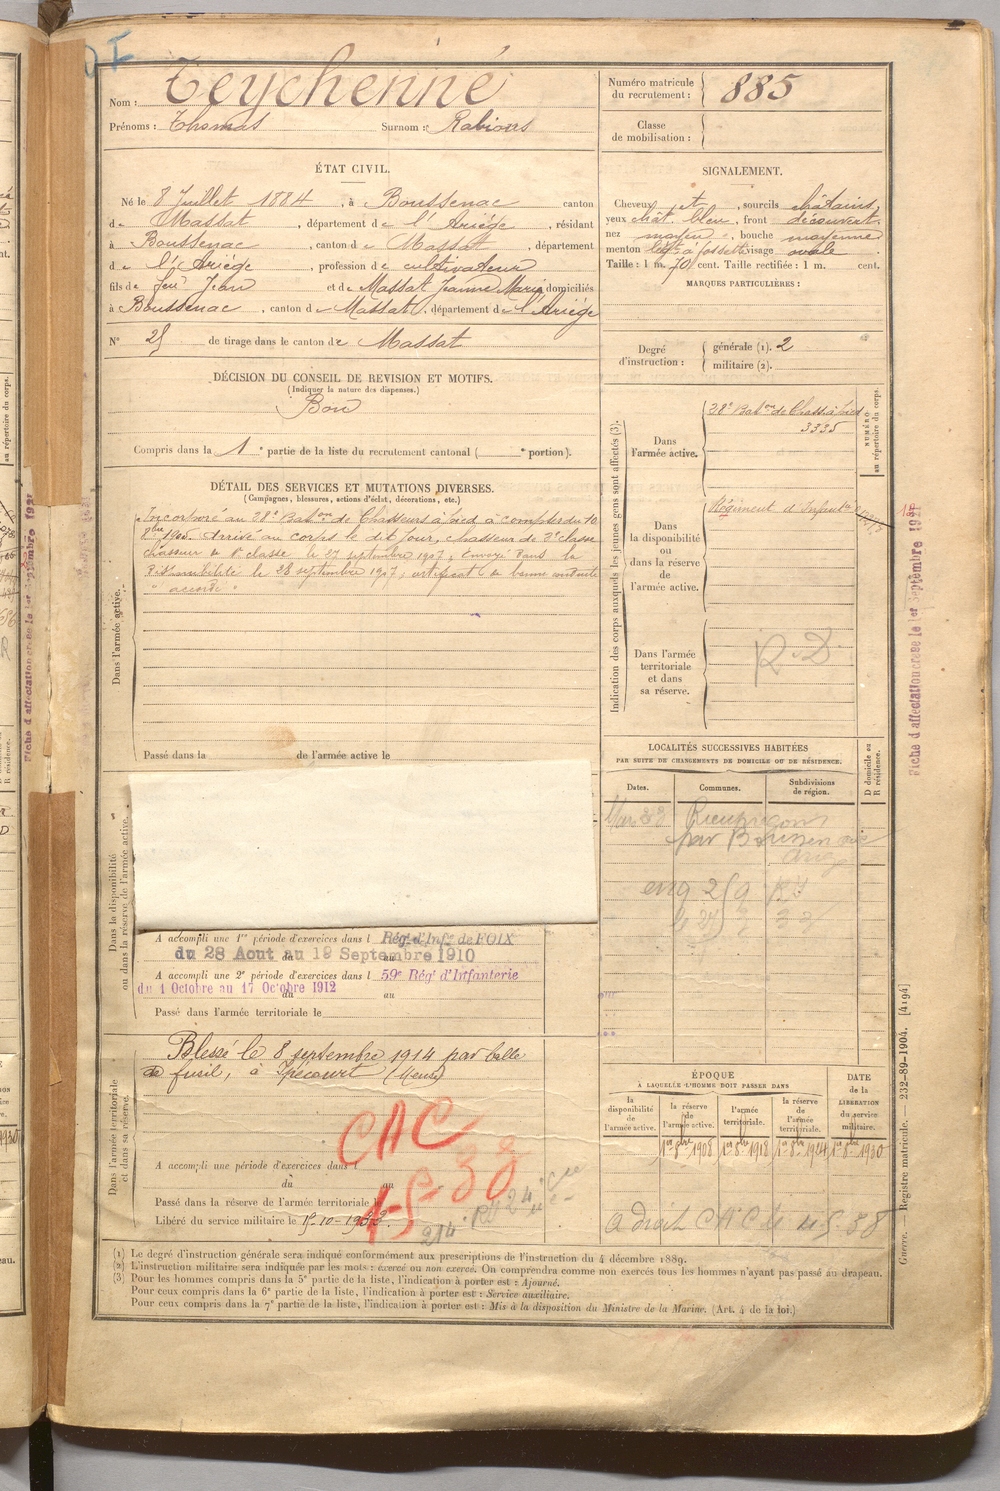 Nom : Teychenné
Prénoms : Thomas Surnom :
Numéro matricule
du recrutement : 885
Classe
de mobilisation :
ÉTAT CIVIL.
Né le 8 Juillet 1884, à Boussenac canton
de Massat, département de l'Ariége, résidant
à Boussenac, canton de Massat, département
de l'Ariége, profession de cultivateur
fils de feu Jean et de Massat Jeanne Marie domiciliés
à Boussenac, canton de Massat, département de l'Ariége
N° 25 de tirage dans le canton de Massat
DÉCISION DU CONSEIL DE REVISION ET MOTIFS.
(Indiquer la nature des dispenses.)
Bon
Compris dans la 1e partie de la liste du recrutement cantonal ( e portion).
SIGNALEMENT.
Cheveux et, sourcils châtains,
yeux chât. bleu, front découvert,
nez moyen, bouche moyenne
menton à fossette visage ovale
Taille : 1 m. 70 cent. Taille rectifiée : 1 m. cent.
MARQUES PARTICULIÈRES :
Degré
d'instruction :
générale (1). 2
militaire (2).
DÉTAIL DES SERVICES ET MUTATIONS DIVERSES.
(Campagnes, blessures, actions d'éclat, décorations, etc.)
Dans l'armée active.
Incorporé au 28e Baton de Chasseurs à pied à compter du 10
Arrivé au corps le dit jour, chasseur de 2e classe
chasseur de 1e classe le 27 septembre 1907, Envoyé dans la
disponibilité le 28 septembre 1907, certificat de bonne conduite
" accordé "
Passé dans la de l'armée active le
Indication des corps auxquels les jeunes gens sont affectés (3).
Dans
l'armée active.
28e Baton de Chass. à pied
3335
NUMÉRO
au répertoire du corps.
Dans
la disponibilité
ou
dans la réserve
de
l'armée active.
Régiment d'Infanterie
Dans l'armée
territoriale
et dans
sa réserve.
R.D.
Fiche d'affectation créée le 1er Septembre 1921
LOCALITÉS SUCCESSIVES HABITÉES
PAR SUITE DE CHANGEMENTS DE DOMICILE OU DE RÉSIDENCE.
Dates. Communes. Subdivisions
de région.
D domicile ou
R résidence.
par Boussenac
Dans la disponibilité
ou dans la réserve de l'armée active.
A accompli une 1re période d'exercices dans l Régt d'Infie de FOIX
du 28 Aout au 19 Septembre 1910
A accompli une 2e période d'exercices dans l 59e Régt d'Infanterie
du 1 Octobre au 17 Octobre 1912
Passé dans l'armée territoriale le
Dans l'armée territoriale
et dans sa réserve.
Blessé le 8 septembre 1914 par balle
de fusil, à Ipécourt (Meuse)
CAC
A accompli une période d'exercices dans l
du au
Passé dans la réserve de l'armée territoriale le
Libéré du service militaire le
ÉPOQUE
À LAQUELLE L'HOMME DOIT PASSER DANS
DATE
de la
LIBÉRATION
du service
militaire.
la
disponibilité
de
l'armée active.
la réserve
de
l'armée active.
l'armée
territoriale.
la réserve
de
l'armée
territoriale.
1er 8bre 1908 1er 8bre 1918 1er 8bre 1924 1er 8bre 1930
a droit CAC
(1) Le degré d'instruction générale sera indiqué conformément aux prescriptions de l'instruction du 4 décembre 1889.
(2) L'instruction militaire sera indiquée par les mots : exercé ou non exercé. On comprendra comme non exercés tous les hommes n'ayant pas passé au drapeau.
(3) Pour les hommes compris dans la 5e partie de la liste, l'indication à porter est : Ajourné.
Pour ceux compris dans la 6e partie de la liste, l'indication à porter est : Service auxiliaire.
Pour ceux compris dans la 7e partie de la liste, l'indication à porter est : Mis à la disposition du Ministre de la Marine. (Art. 4 de la loi.)
Guerre. — Registre matricule. — 232-89-1904. [4194]